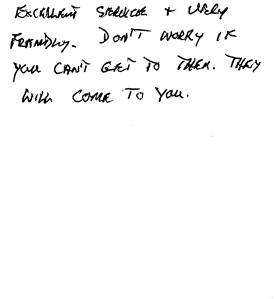 EXCELLENT SERVICE + VERY
FRIENDLY. DON'T WORRY IF
YOU CAN'T GET TO THEM. THEY
WILL COME TO YOU.